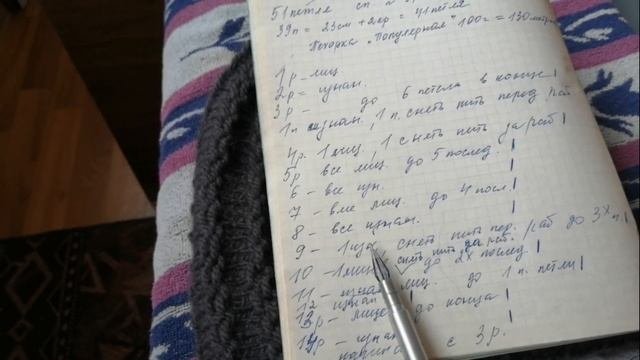 51 петля сп
39п = 23см + 2кр = 41 петля
Пехорка "Популярная" 100г = 130метр
1р - лиц
2р = изнан.
3р - до 6 петель в конце
1п изнан, 1 п. снять нить перед раб
4р. 1 лиц, 1 снять нить за раб
5р все лиц. до 5 послед.
6 - все изн.
7 - все лиц. до 4 посл.
8 - все изнан.
9 - 1 изн, снять нить пер. раб до 3х п.
10 - 1 лиц, снять нить за раб.
11 - лиц. до 2х послед.
12 изнан
13р - лице до 1 п. петли
14р - изнан до конца
с 3р.